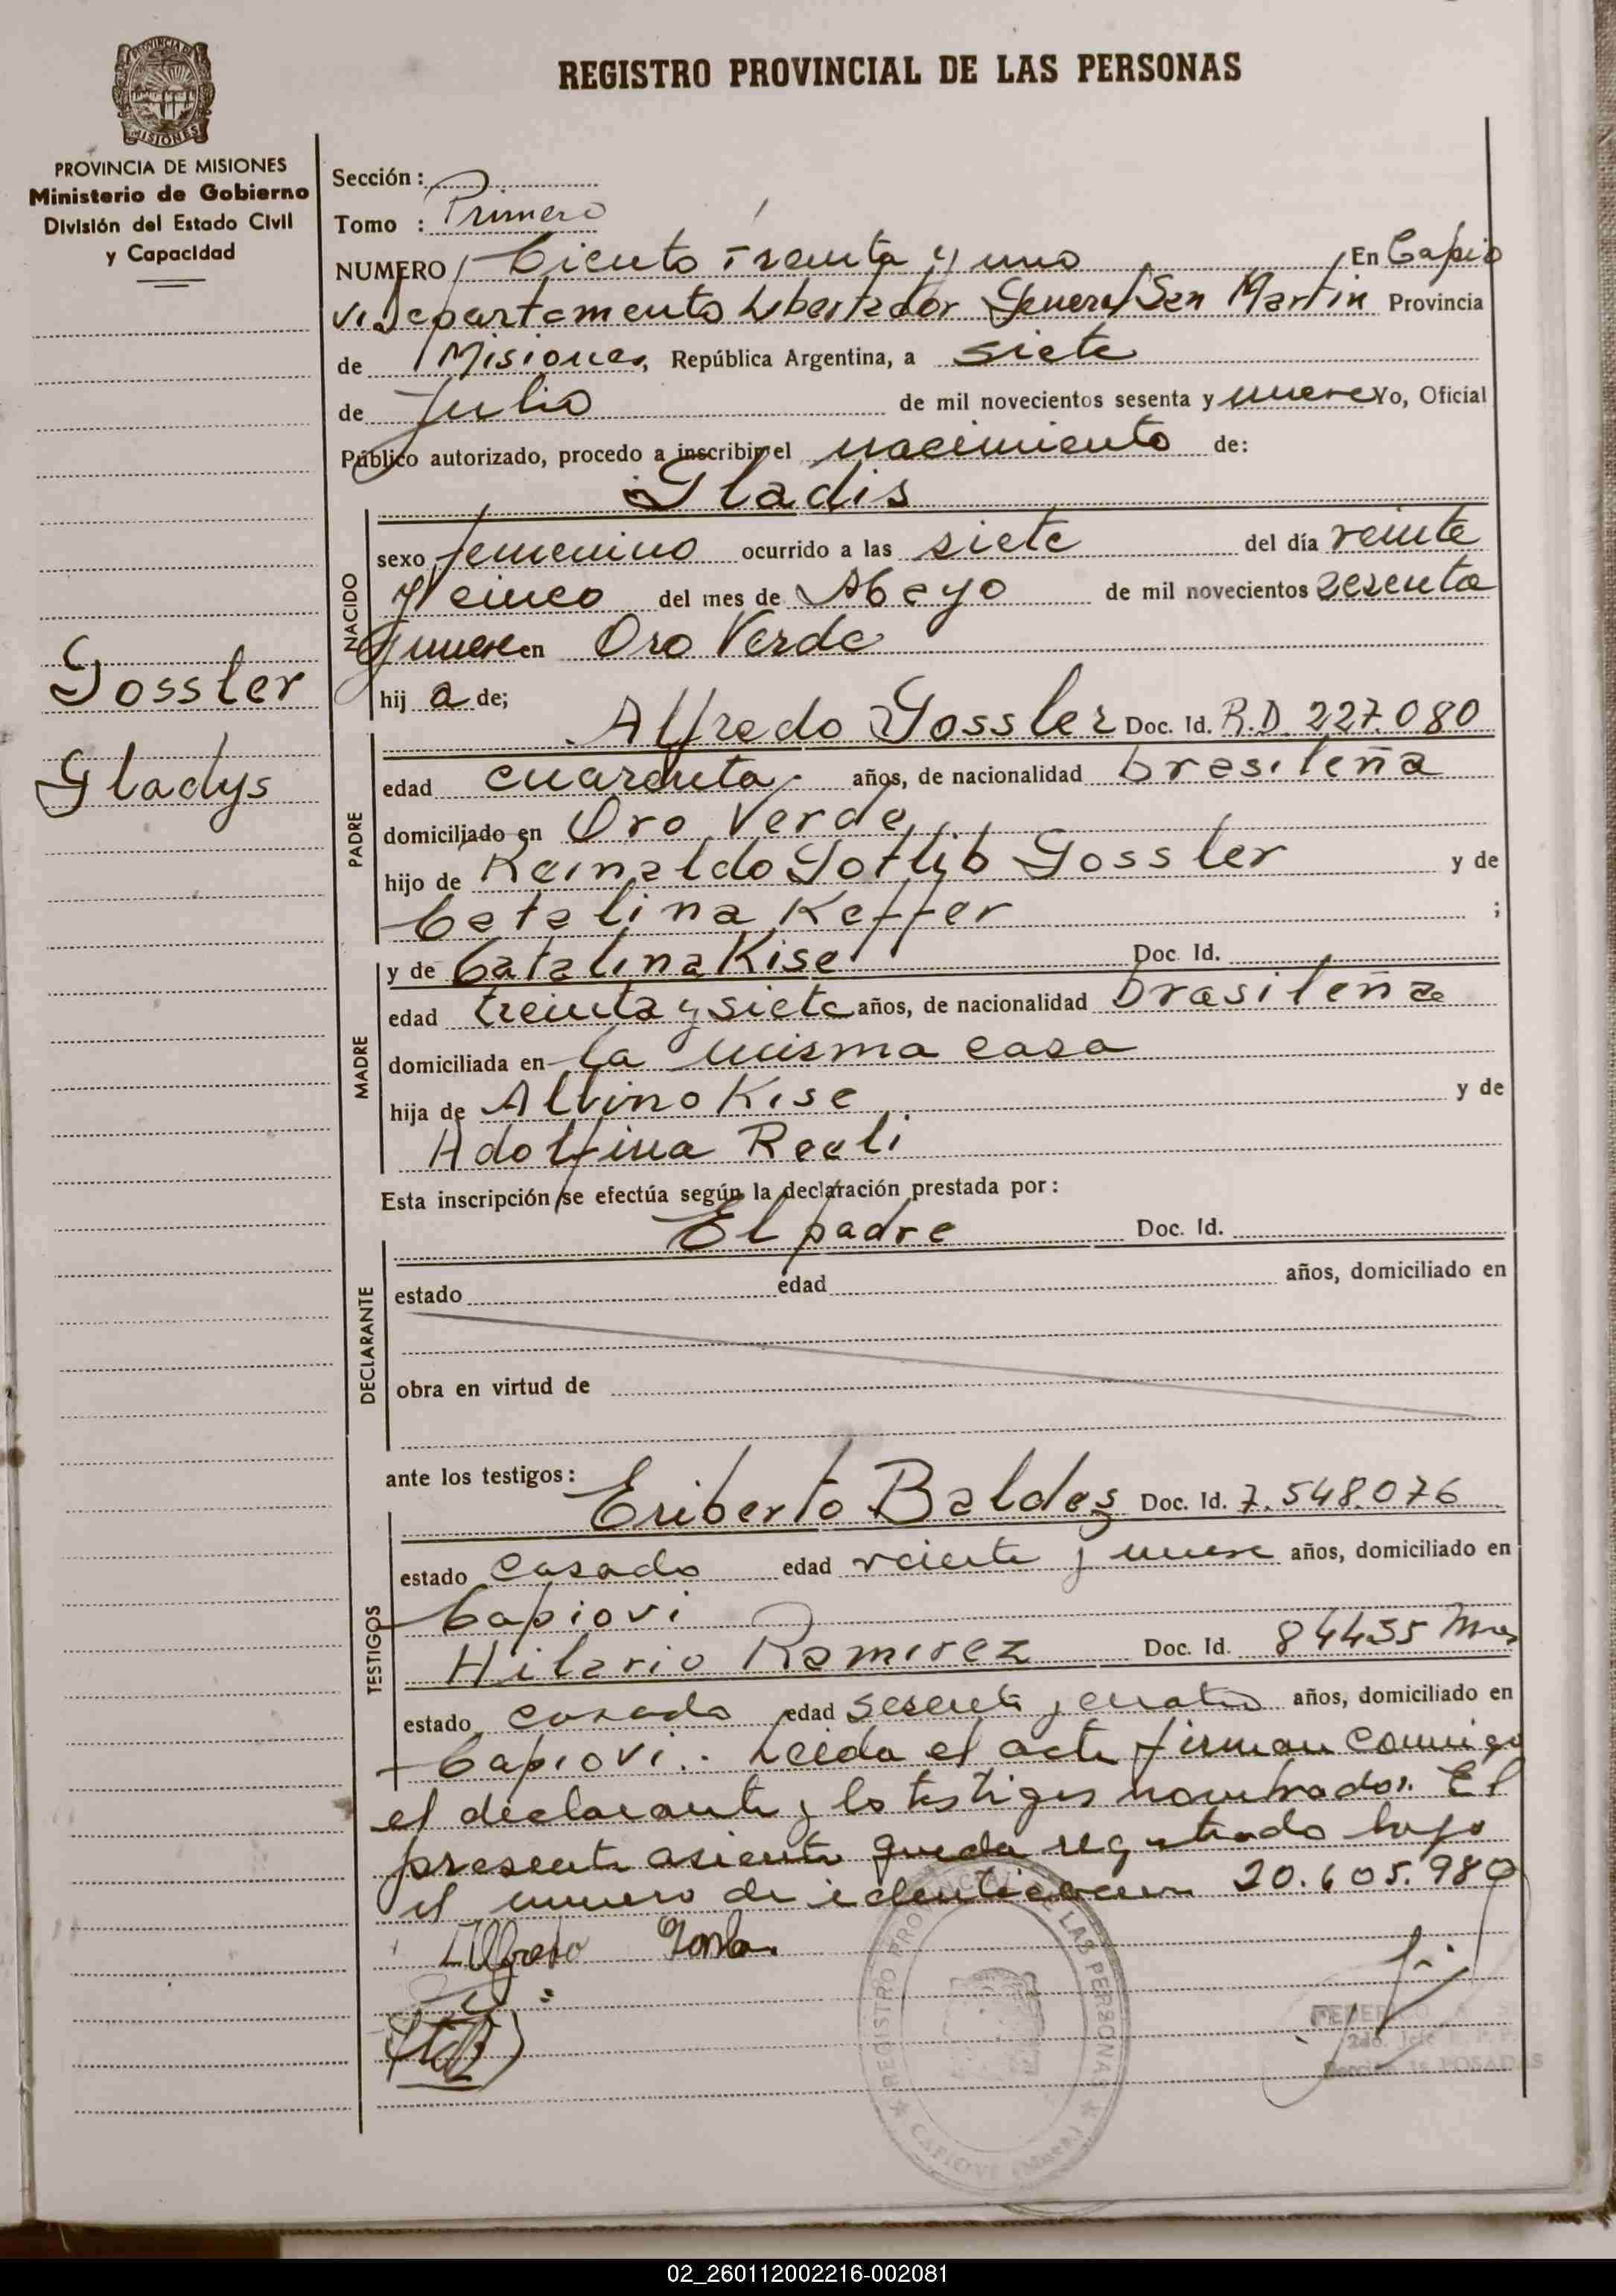 REGISTRO PROVINCIAL DE LAS PERSONAS
PROVINCIA DE MISIONES
Ministerio de Gobierno
División del Estado Civil
y Capacidad
Gossler
Gladys
Sección:
Tomo : Primero
NUMERO Ciento Treinta y uno En Capio
vi Departamento Libertador General San Martin Provincia
de Misiones, República Argentina, a siete
de Julio de mil novecientos sesenta y nueve Yo, Oficial
Público autorizado, procedo a inscribir el nacimiento de:
Gladis
NACIDO
sexo femenino ocurrido a las siete del día veinte
y cinco del mes de Mayo de mil novecientos sesenta
y nueve en Oro Verde
hij a de;
PADRE
Alfredo Gossler Doc. Id. R.D. 227.080
edad cuarenta años, de nacionalidad brasileña
domiciliado en Oro Verde
hijo de Reinaldo Gotlib Gossler y de
Catalina Keffer ;
MADRE
y de Catalina Kise Doc. Id.
edad treinta y siete años, de nacionalidad brasileña
domiciliada en la misma casa
hija de Alvino Kise y de
Adolfina Reeli
Esta inscripción se efectúa según la declaración prestada por:
DECLARANTE
El padre Doc. Id.
estado edad años, domiciliado en
obra en virtud de
ante los testigos:
TESTIGOS
Eriberto Baldes Doc. Id. 7.548.076
estado casado edad veinte y nueve años, domiciliado en
Capiovi
Hilario Ramirez Doc. Id. 84435 Mnes
estado casado edad sesenta y cuatro años, domiciliado en
Capiovi. Leida el acta firman conmigo
el declarante y los testigos nombrados. El
presente asiento queda registrado bajo
el numero de identificacion 20.605.980
Alfredo
REGISTRO PROVINCIAL DE LAS PERSONAS
CAPIOVI (Mnes.)
2do. Jefe R. P. P.
Sección 1a POSADAS
02_260112002216-002081